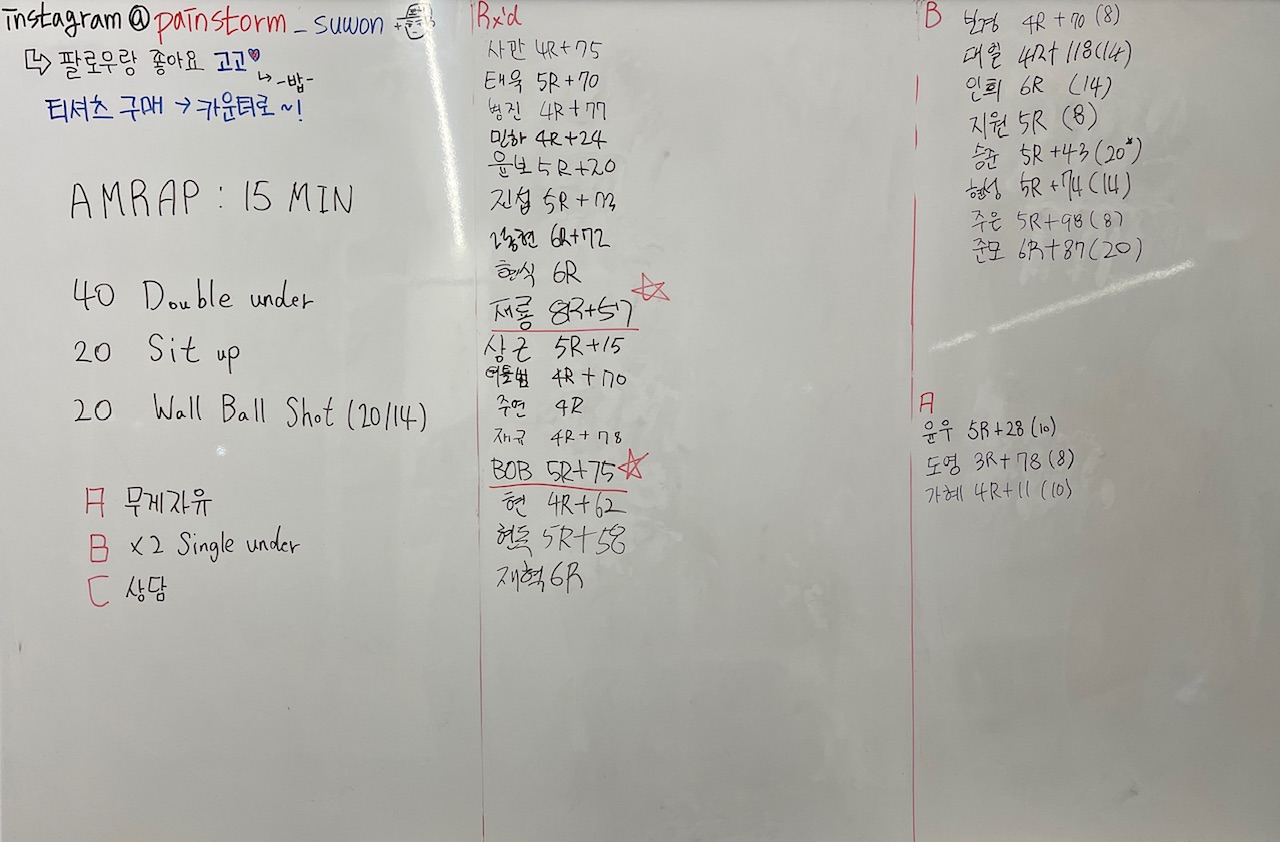 instagram@painstorm_suwon
팔로우랑 좋아요 고고
-밥-
티셔츠 구매 → 카운터로~!
AMRAP : 15 MIN
40 Double under
20 Sit up
20 Wall Ball Shot (20/14)
A 무게자유
B x2 Single under
C 상담
Rx'd
사만 4R+75
태욱 5R+70
병진 4R+77
민하 4R+24
윤보 5R+20
진섭 5R+73
6R+72
현식 6R
재룡 8R+57
상근 5R+15
4R+70
주연 4R
재규 4R+78
BOB 5R+75
현 4R+62
현득 5R+58
재혁 6R
B
보경 4R+70 (8)
대월 4R+118(14)
인희 6R (14)
지원 5R (8)
승준 5R+43(20*)
현성 5R+74(14)
주은 5R+98(8)
준모 6R+87(20)
A
윤우 5R+28(10)
도영 3R+78(8)
가혜 4R+11(10)